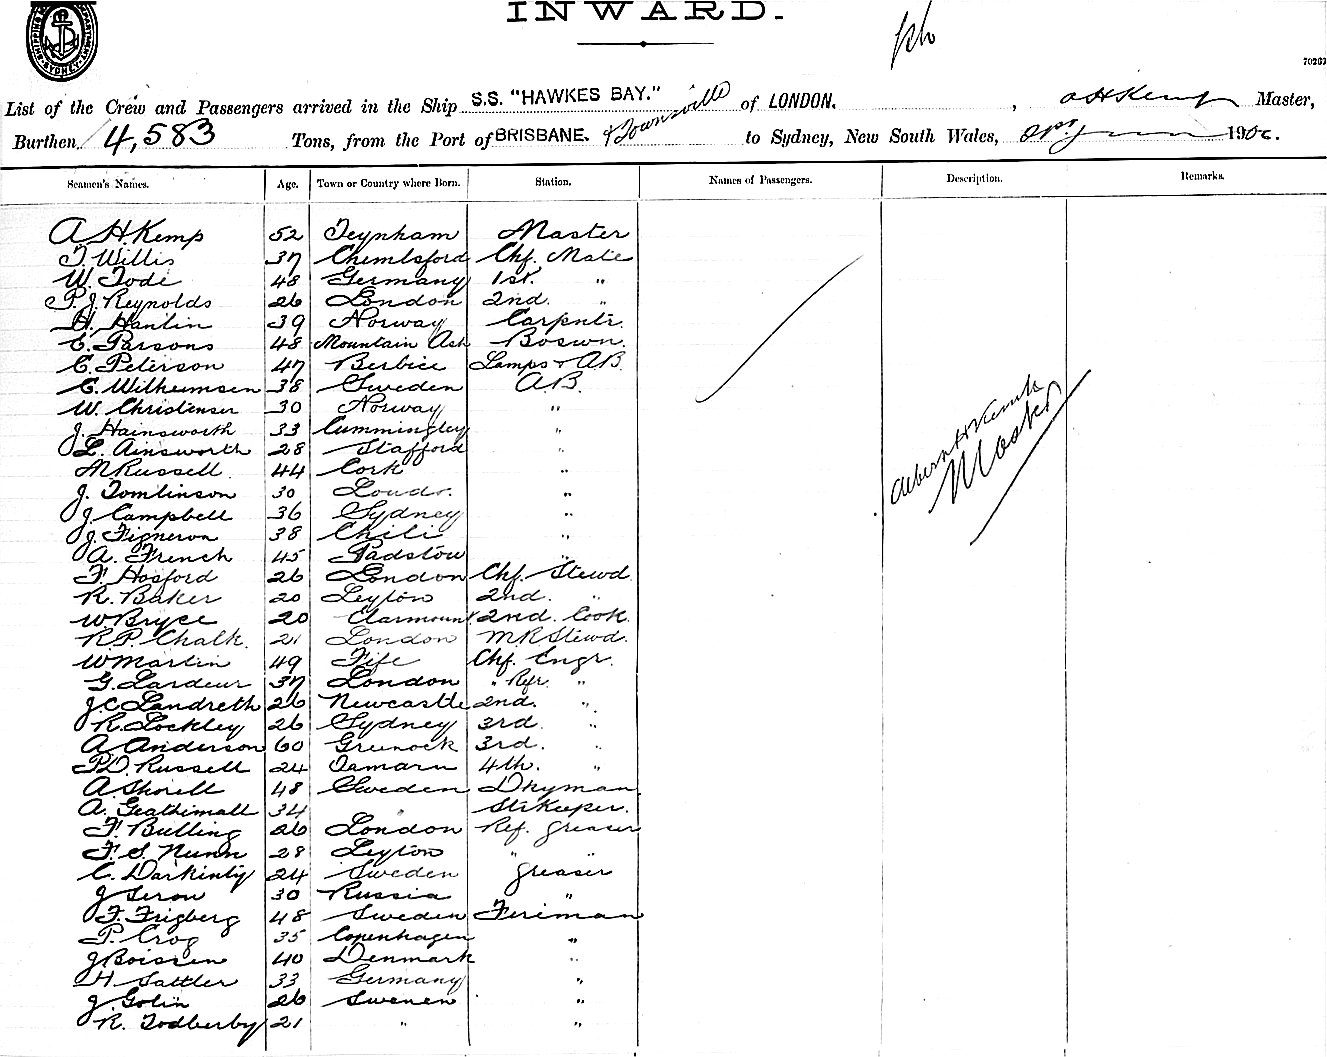 INWARD.
SHIPPING DEPARTMENT SYDNEY
70263
List of the Crew and Passengers arrived in the Ship S.S. "HAWKES BAY." of LONDON. , A H Kemp Master,
Burthen 4,583 Tons, from the Port of BRISBANE. & Townsville to Sydney, New South Wales, 190
Seamen's Names. Age. Town or Country where Born. Station. Names of Passengers. Description. Remarks.
A. H. Kemp 52 Teynham Master
T. Willis 37 Chemlsford Chf. Mate
W. Tode 48 Germany 1st. "
P. J. Reynolds 26 London 2nd. "
H. Hanlin 39 Norway Carpntr.
C. Parsons 48 Mountain Ash Boswn.
C. Peterson 47 Berbice Lamps & AB.
C. Wilheumsen 38 Sweden A.B.
W. Christensen 30 Norway "
J. Hainsworth 33 Cummingley "
L. Ainsworth 28 Stafford "
M Russell 44 Cork "
J. Tomlinson 30 "
J. Campbell 36 Sydney "
J. Figneron 38 Chili "
A. French 45 Padstow "
F. Hosford 26 London Chf. Stewd.
R. Baker 20 Leyton 2nd. "
W Bryce 20 Clarmount 2nd. Cook.
R.P. Chalk. 21 London M.R Stewd.
W Martin 49 Fife Chf. Engr.
G. Lardeur 37 London " Refr. "
J.C Landreth 26 Newcastle 2nd. "
R. Lockley 26 Sydney 3rd. "
A Anderson 60 Greenock 3rd. "
P.D. Russell 24 4th. "
A. 48 Sweden Dkyman
A. 34 " StrKeeper.
F. Bulling 26 London Ref. greaser
F. S. Nunn 28 Leyton " "
C. Darkinty 24 Sweden greaser
J 30 Russia "
F. Frigberg 48 Sweden Fireman
P. Crog 35 Copenhagen "
J Boissen 40 Denmark "
H Sattler 33 Germany "
J. Golin 26 Sweden "
R. Todberby 21 " "
Albern H Kemp
Master